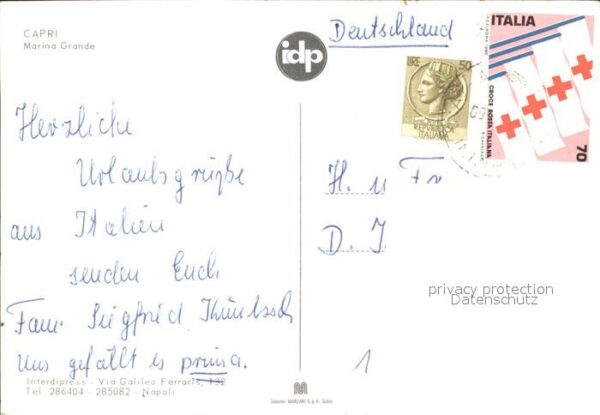 CAPRI
Marina Grande
idp
Deutschland
LIRE 50
REPUBBLICA
ITALIANA
ITALIA
CROCE ROSSA ITALIANA
70
Herzliche
Urlaubsgrüße
aus Italien
senden Euch
Fam. Siegfried
Uns gefällt es prima.
H. u Fr
D. J.
privacy protection
Datenschutz
1
Interdipress - Via Galileo Ferraris, 132
Tel. 286404 - 285082 - Napoli